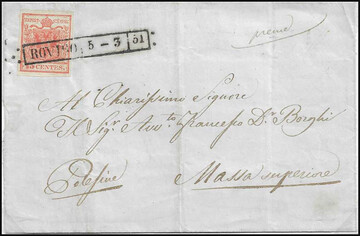 preme
ROVIGO. 5 - 3 51
15 CENTES.
Al Chiarissimo Signore
Il Sigr Avvto Francesco Dr Borghi
Polesine Massa superiore